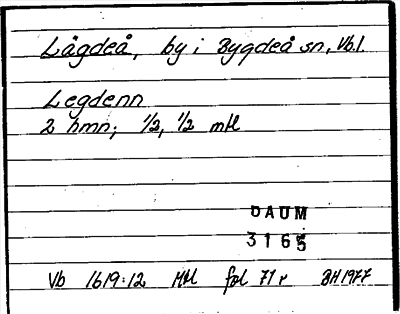 Lågdeå, by i Bygdeå sn, Vb.l.
Legdenn
2 hmn; 1/2, 1/2 mtl
DAUM
3165
Vb 1619:12 Mtl fol 71 r BH 1977